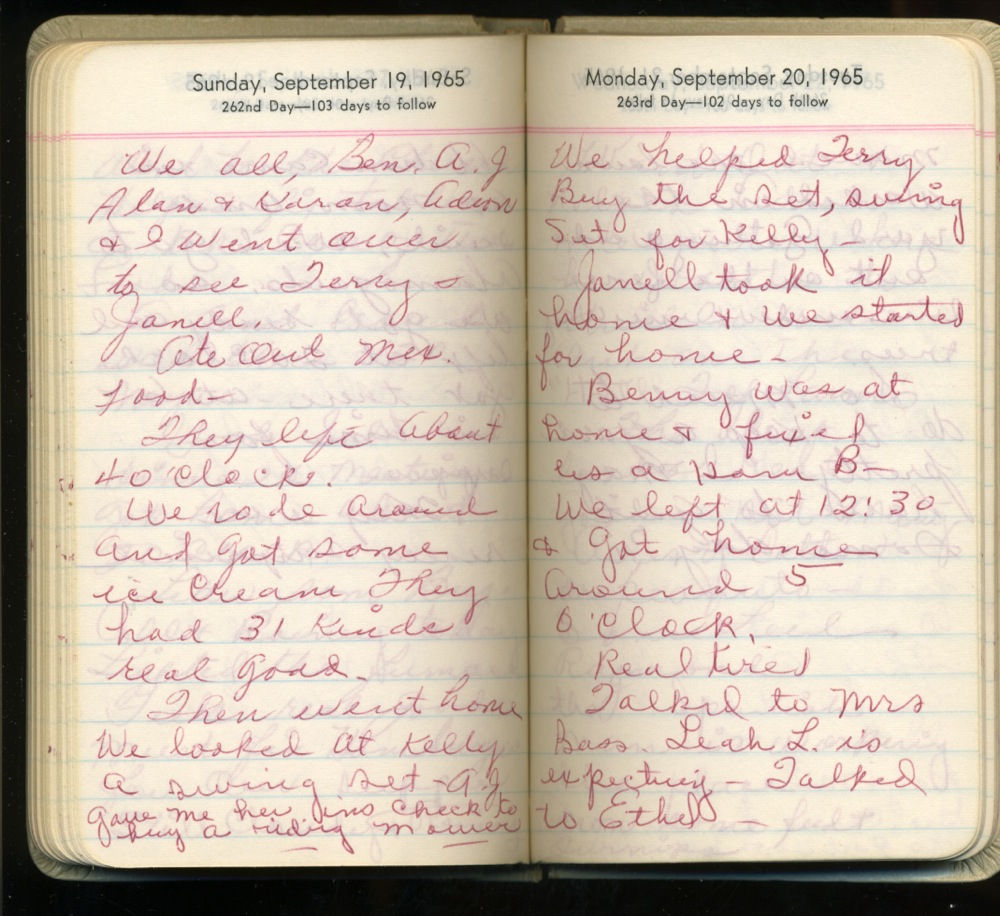 Sunday, September 19, 1965
262nd Day—103 days to follow
We all, Ben. A. J
Alan & Karan, 
& I went over
to see Terry &
Janell.
Ate out Mex.
food-
They left about
4 o'clock.
We rode around
and got some
ice cream They
had 31 kinds
real good-
Then went home
We looked at Kelly
a swing set - A.J
gave me her ins check to
buy a riding mower
Monday, September 20, 1965
263rd Day—102 days to follow
We helped Terry
Buy the set, swing
Set for Kelly -
Janell took it
home & we started
for home -
Benny was at
home & fixed
us a Ham B-
We left at 12:30
& got home
around 5
O'Clock.
Real tired
Talked to Mrs
Bass Leah L. is
expecting - Talked
to Ethel -